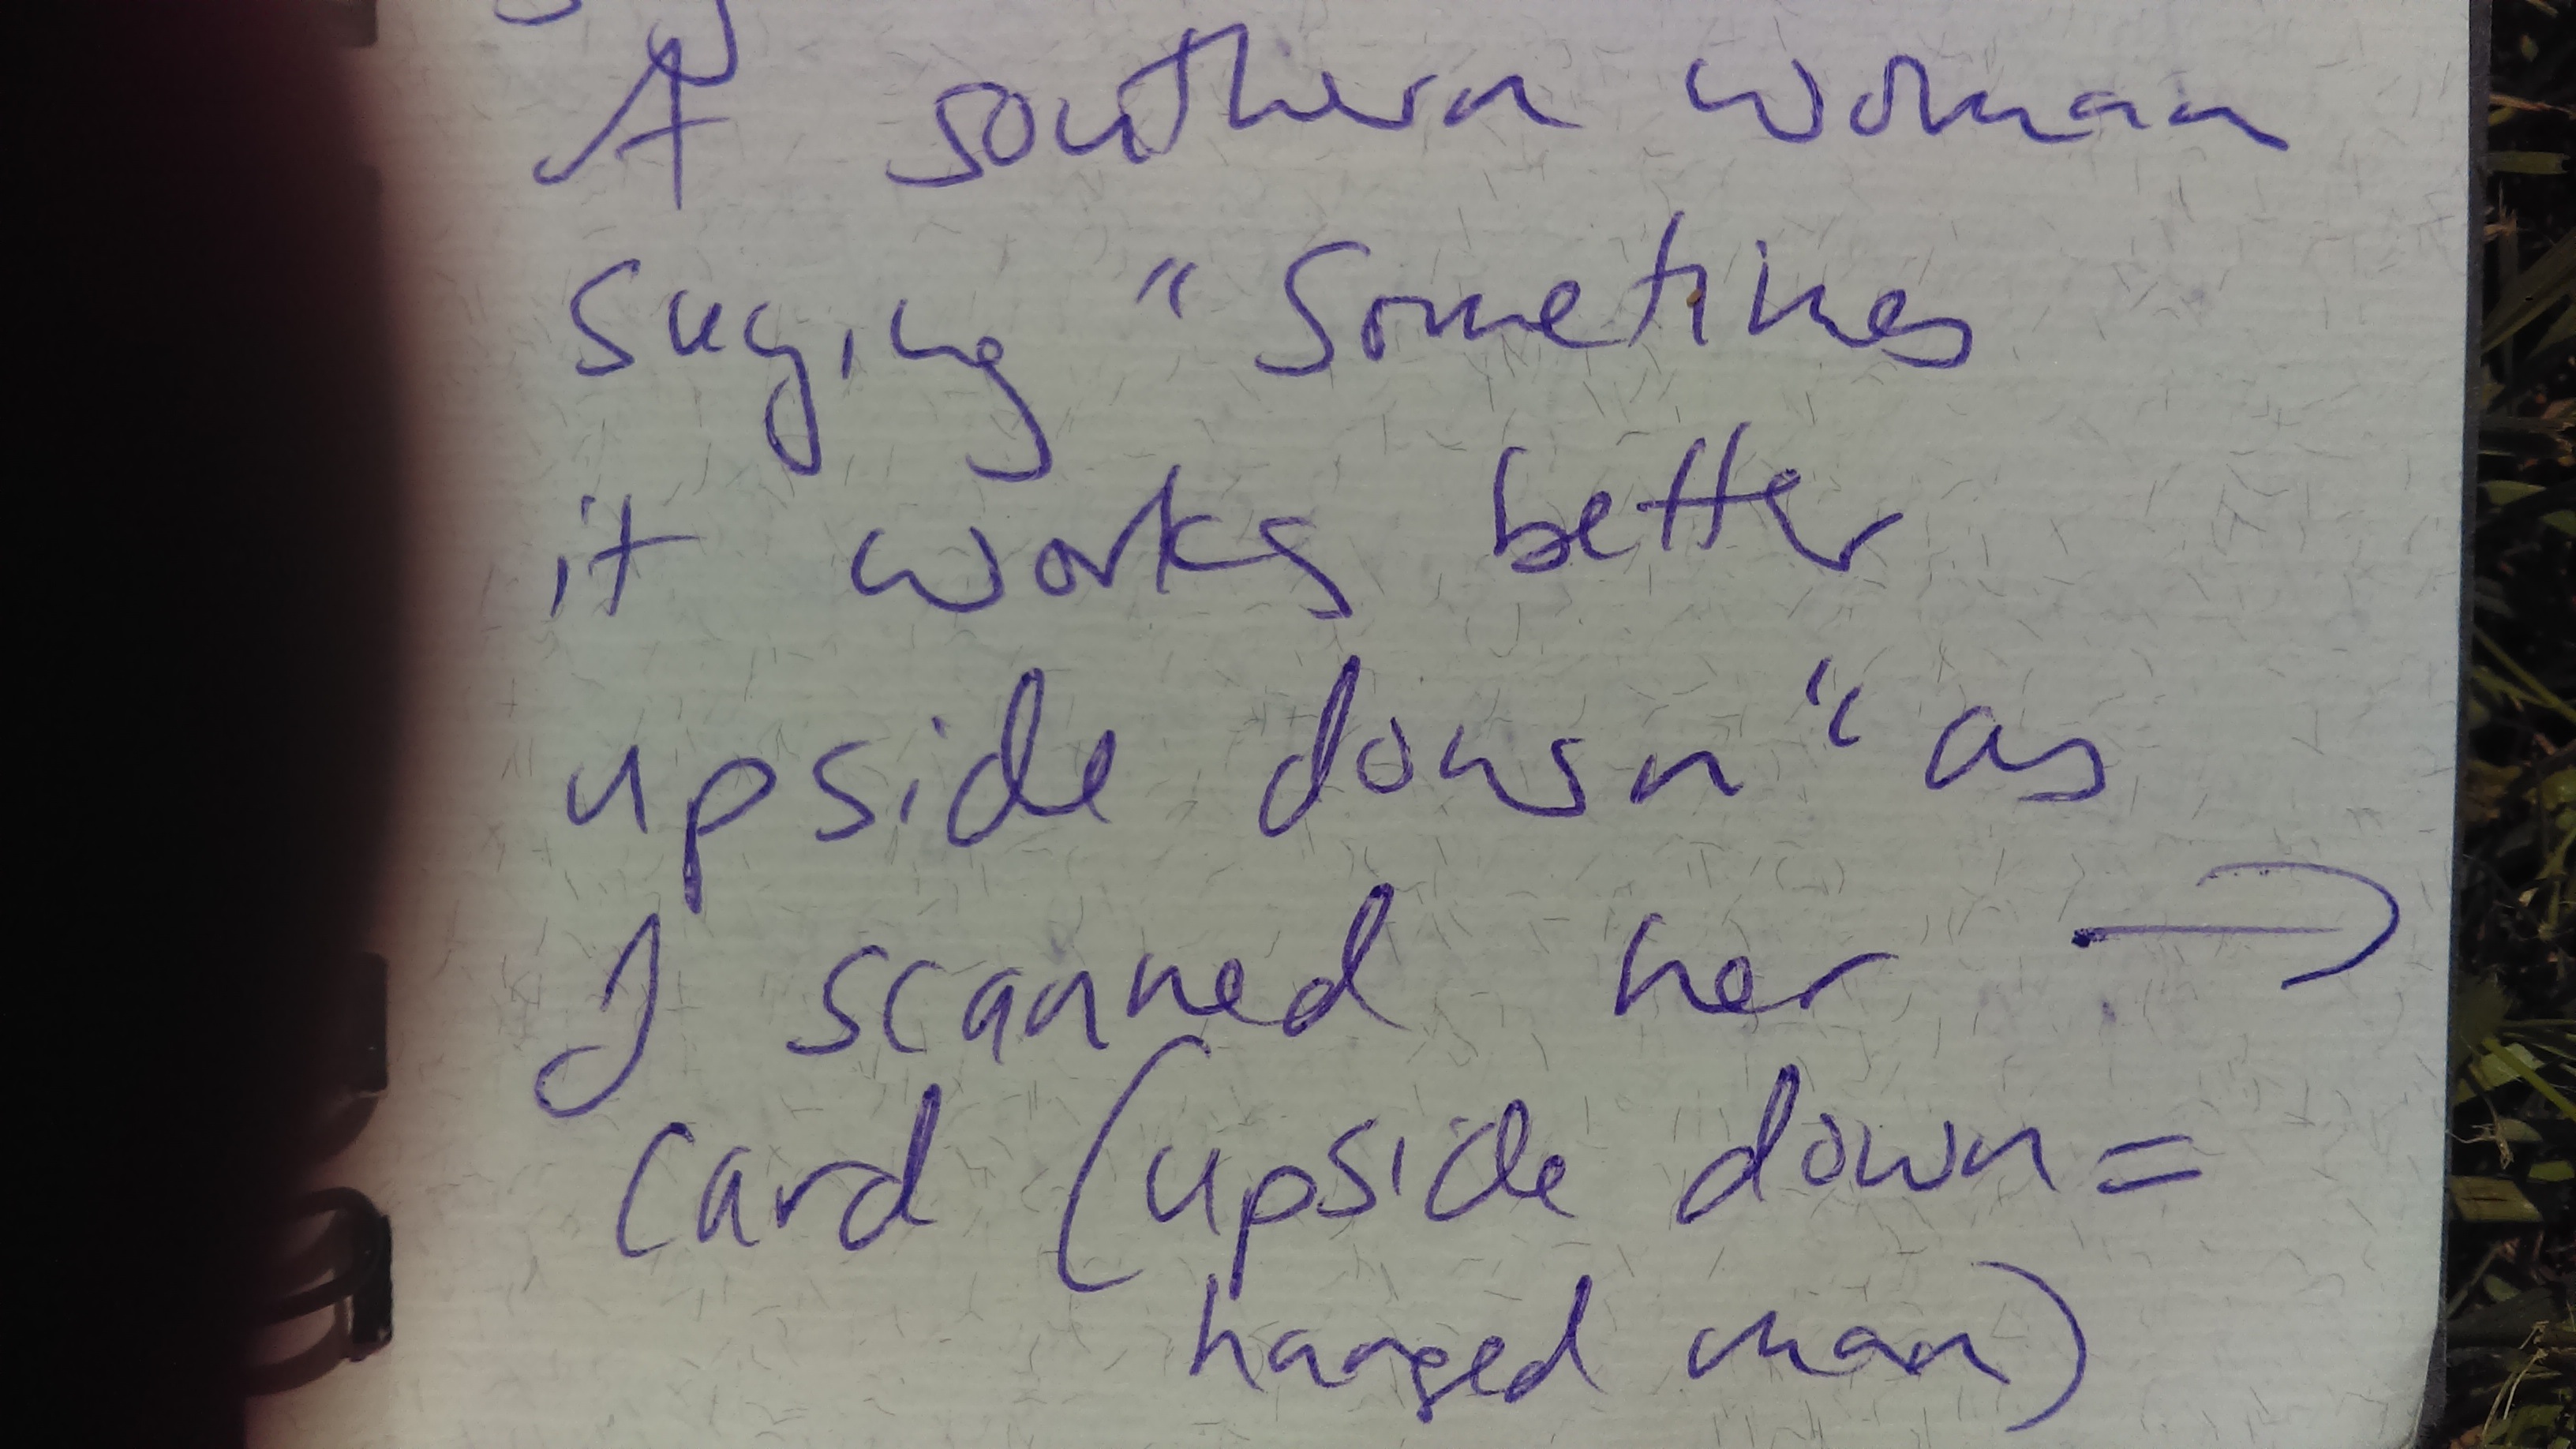 A southern woman
saying "Sometimes
it works better
upside down" as
I scanned her →
card (upside down =
hanged man)